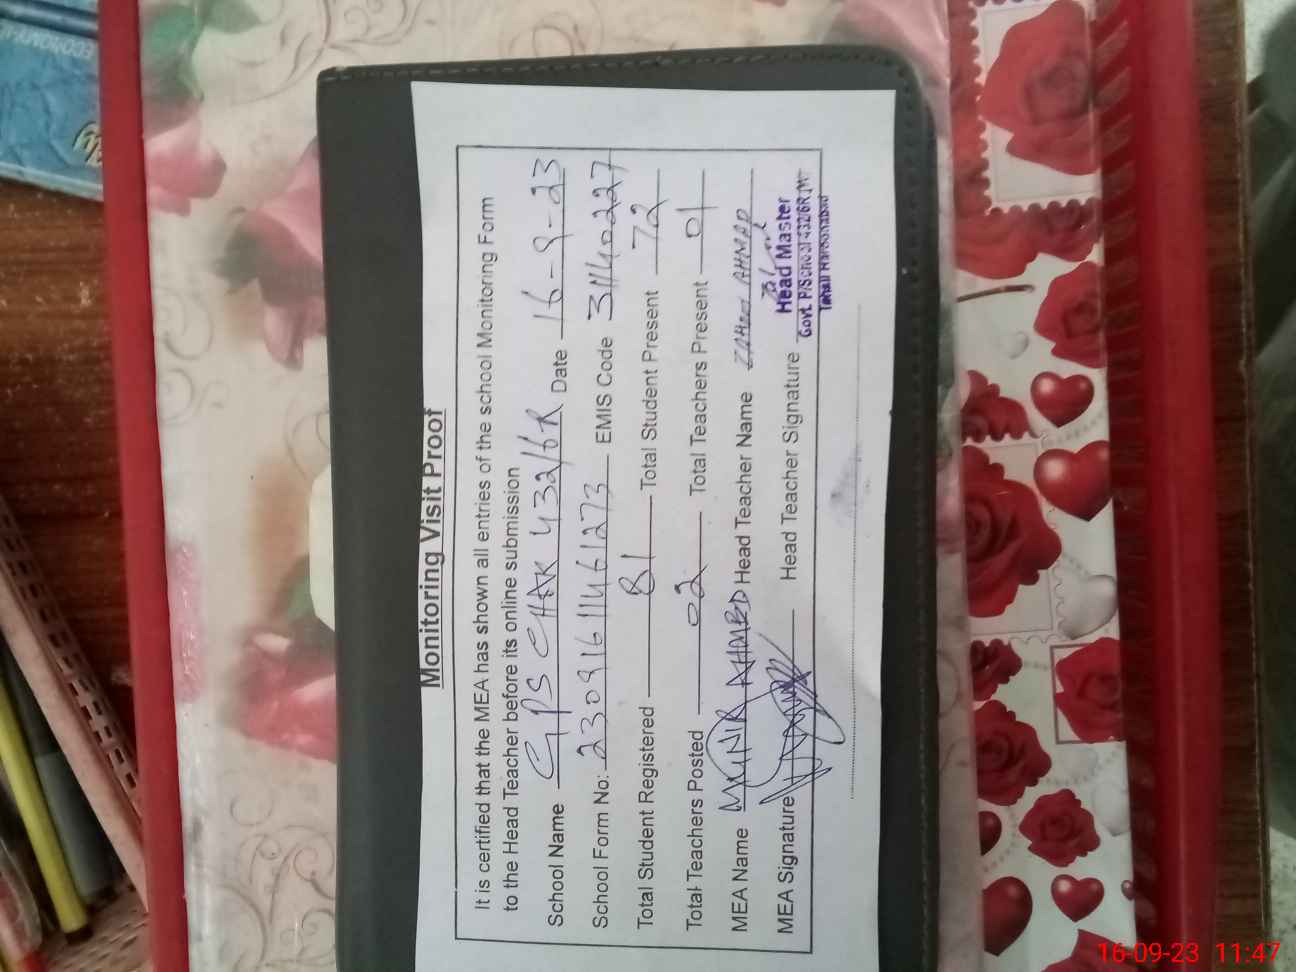 Monitoring Visit Proof
It is certified that the MEA has shown all entries of the school Monitoring Form
to the Head Teacher before its online submission
School Name GPS CHAK 432/6R Date 16-9-23
School Form No: 23091611461273 EMIS Code 31140227
Total Student Registered 81 Total Student Present 72
Total Teachers Posted 02 Total Teachers Present 01
MEA Name MUNIR AHMED Head Teacher Name AHMAD
MEA Signature Head Teacher Signature
Head Master
Govt. P/School 432/6R
Tehsil Haroonabad
ECONOMY
16-09-23 11:47